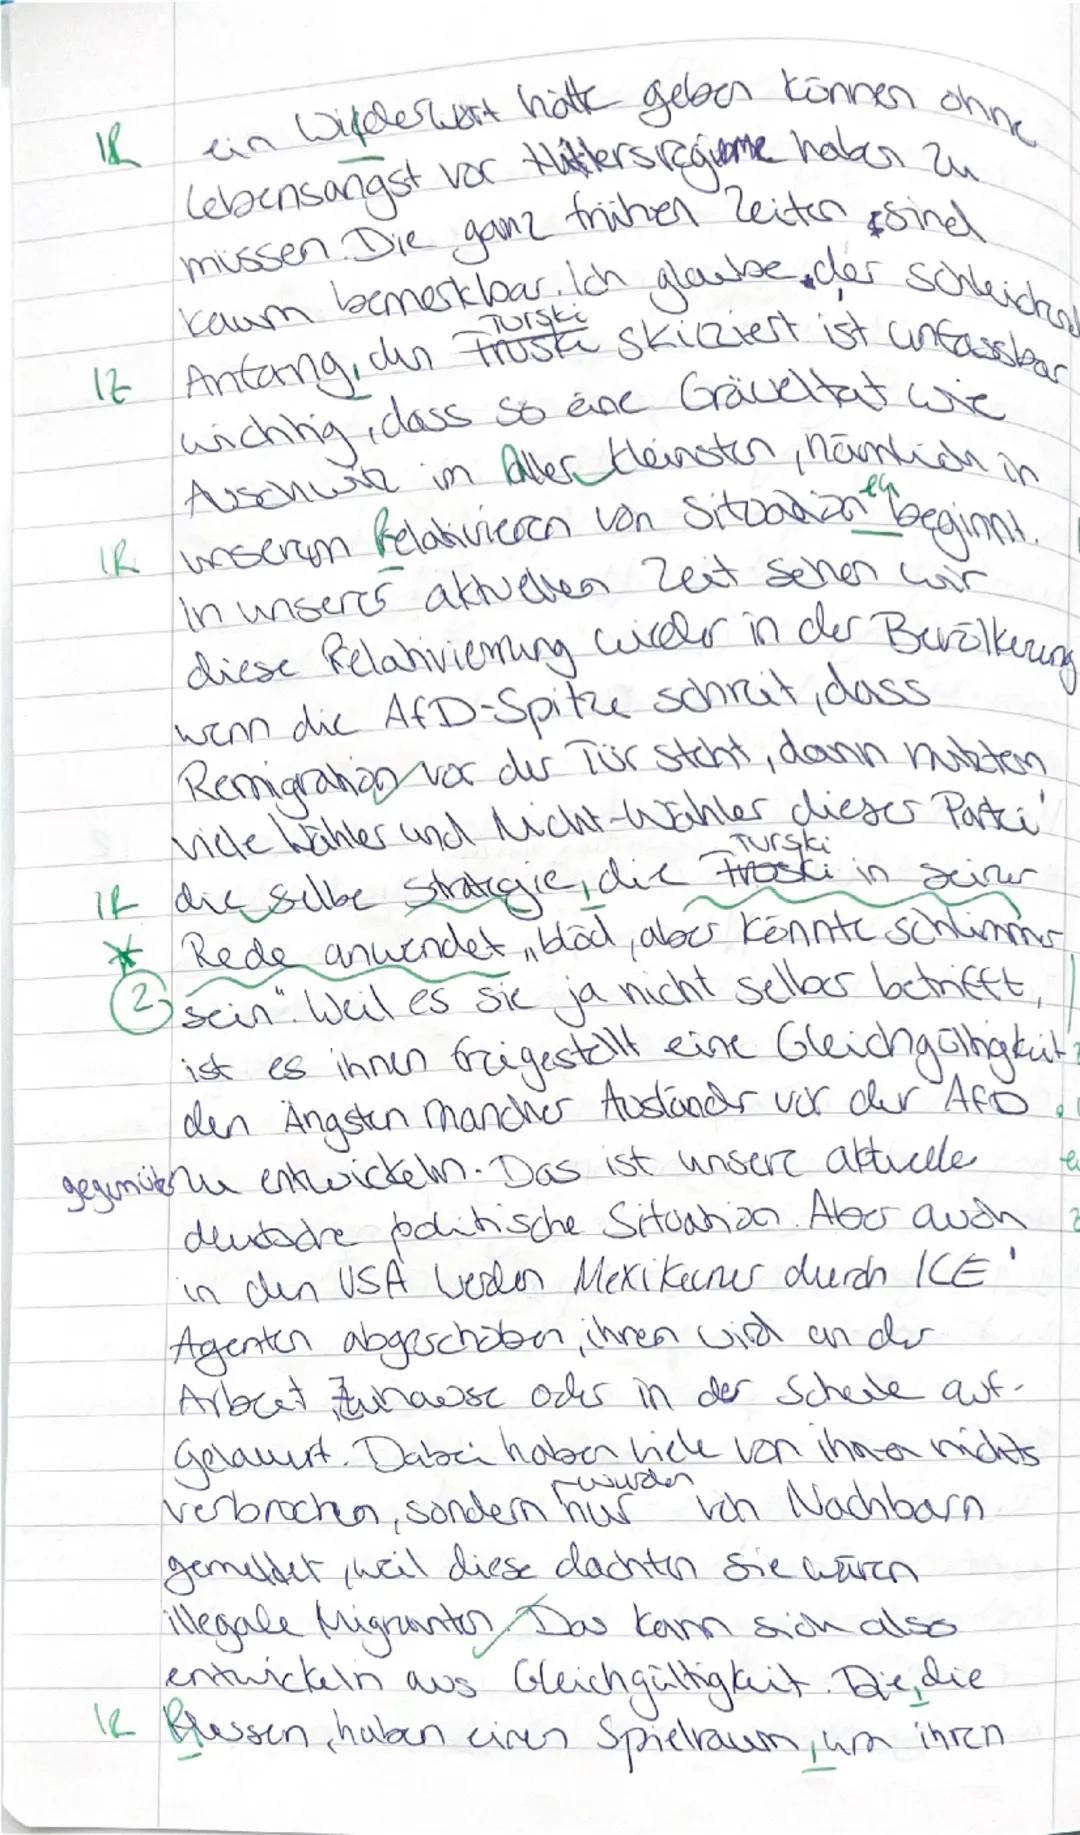 1R ein Wiederwort hätte geben können ohne
Lebensangst vor Hitlersregieme haben zu
müssen. Die ganz frühen Zeiten sind
kaum bemerkbar. Ich glaube, der schleichend
Turski
1Z Anfang, den Truski skizziert ist unfassbar
wichtig, dass so eine Gräueltat wie
Auschwitz im Aller kleinsten, nämlich in
en
1R unserem Relativieren von Situation beginnt.
in unserer aktuellen Zeit sehen wir
diese Relativierung wieder in der Bevölkerung
wenn die AfD-Spitze schreit, dass
Remigration vor der Tür steht, dann nutzten
viele Wähler und Nicht-Wähler dieser Partei
Turski
1R die selbe Stratgie, die Truski in seiner
* Rede anwendet „blöd, aber könnte schlimmer
2 sein". Weil es sie ja nicht selber betrifft,
ist es ihnen freigestellt eine Gleichgültigkeit
den Ängsten mancher Ausländer vor der AfD
gegenüber zu entwickeln. Das ist unsere aktuelle
deutsche politische Situation. Aber auch
in den USA werden Mexikaner durch ICE
Agenten abgeschoben, ihnen wird an der
Arbeit, Zuhause oder in der Schule auf-
gelauert. Dabei haben viele von ihnen nichts
wurden
verbrochen, sondern nur von Nachbarn
gemeldet, weil diese dachten sie wären
illegale Migranten. Das kann sich also
entwickeln aus Gleichgültigkeit. Die, die
1R haben einen Spielraum, um ihren